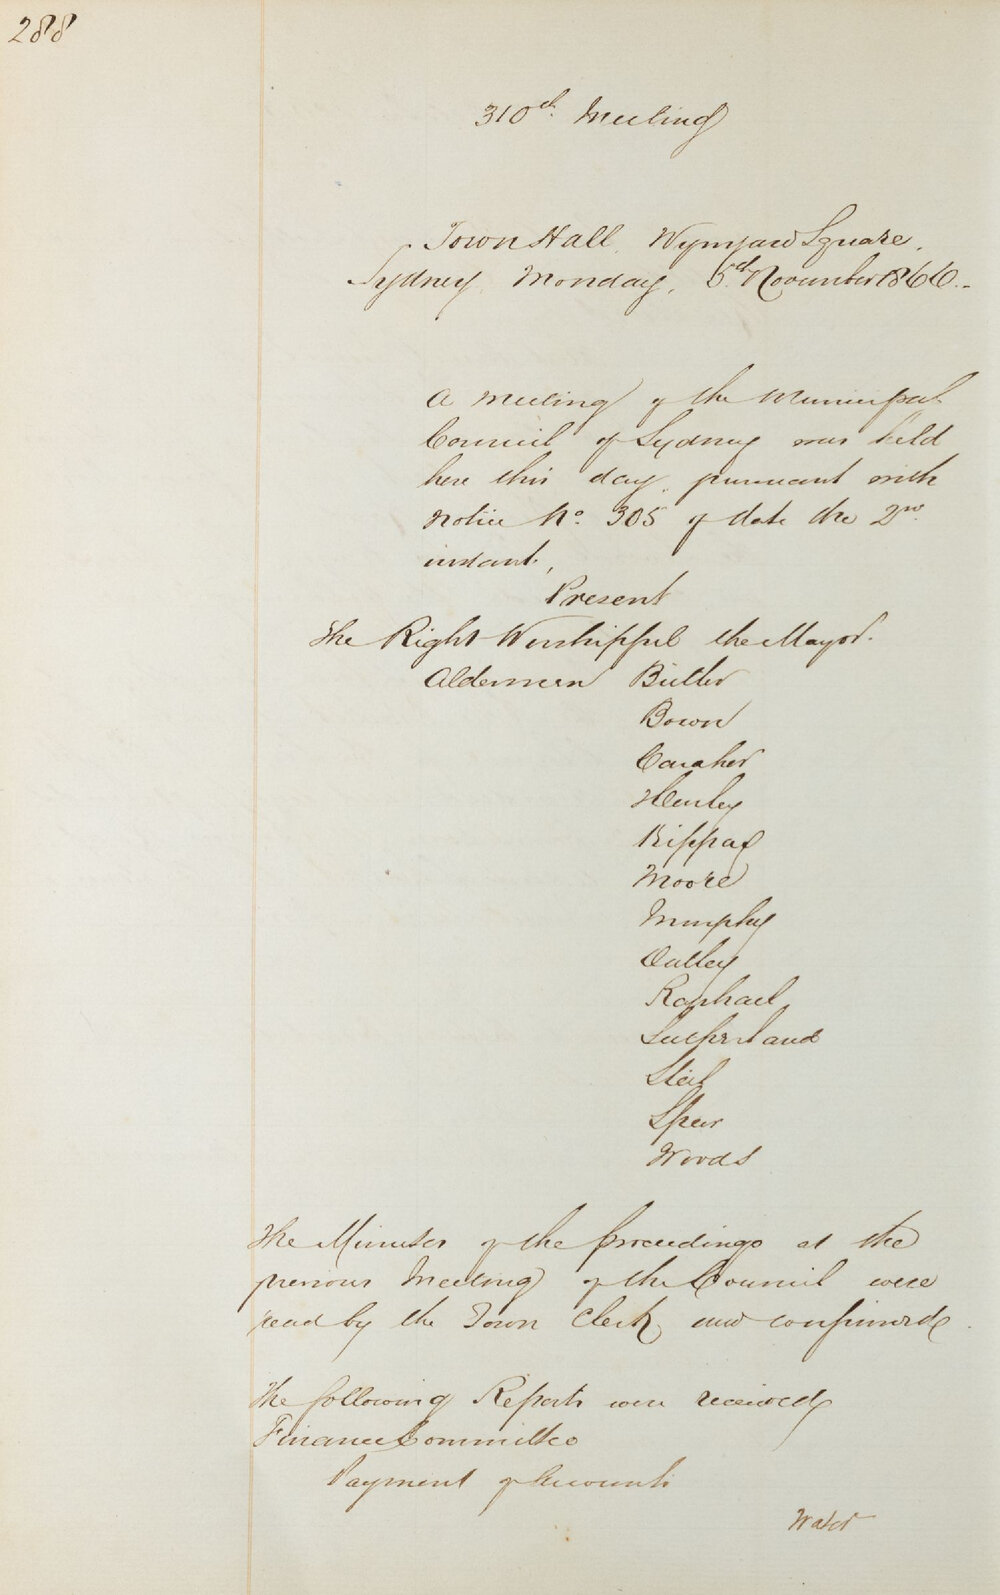 288
310th. Meeting
Town Hall, Wynyard Square,
Sydney, Monday, 5th November 1866.-
A meeting of the Municipal
Council of Sydney was held
here this day, pursuant with
notice No. 305 of date the 2nd.
instant,
Present
The Right Worshipful the Mayor.
Aldermen Butler
Bown
Caraher
Henley
Kippax
Moore
Murphy
Oatley
Raphael
Sutherland
Steel
Speer
Woods
The Minutes of the proceedings at the
previous Meeting of the Council were
read by the Town Clerk, and confirmed.
The following Reports were received
Finance Committee
Payment of Accounts
Water